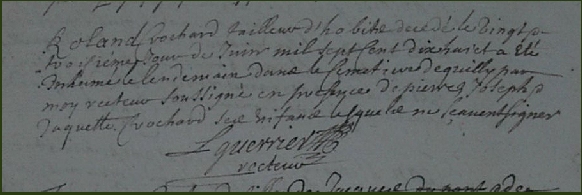 Roland Rochard tailleur d'habits decedé le vingt
troisieme Jour de Juin mil sept sent dix huict a eté
Inhumé le lendemain dans le semetiere de quilly par
moy recteur soussigné en presence de pierre Joseph
Jaquette Rochard ses enfans lesquels ne sçavent signer
L guerrier
recteur